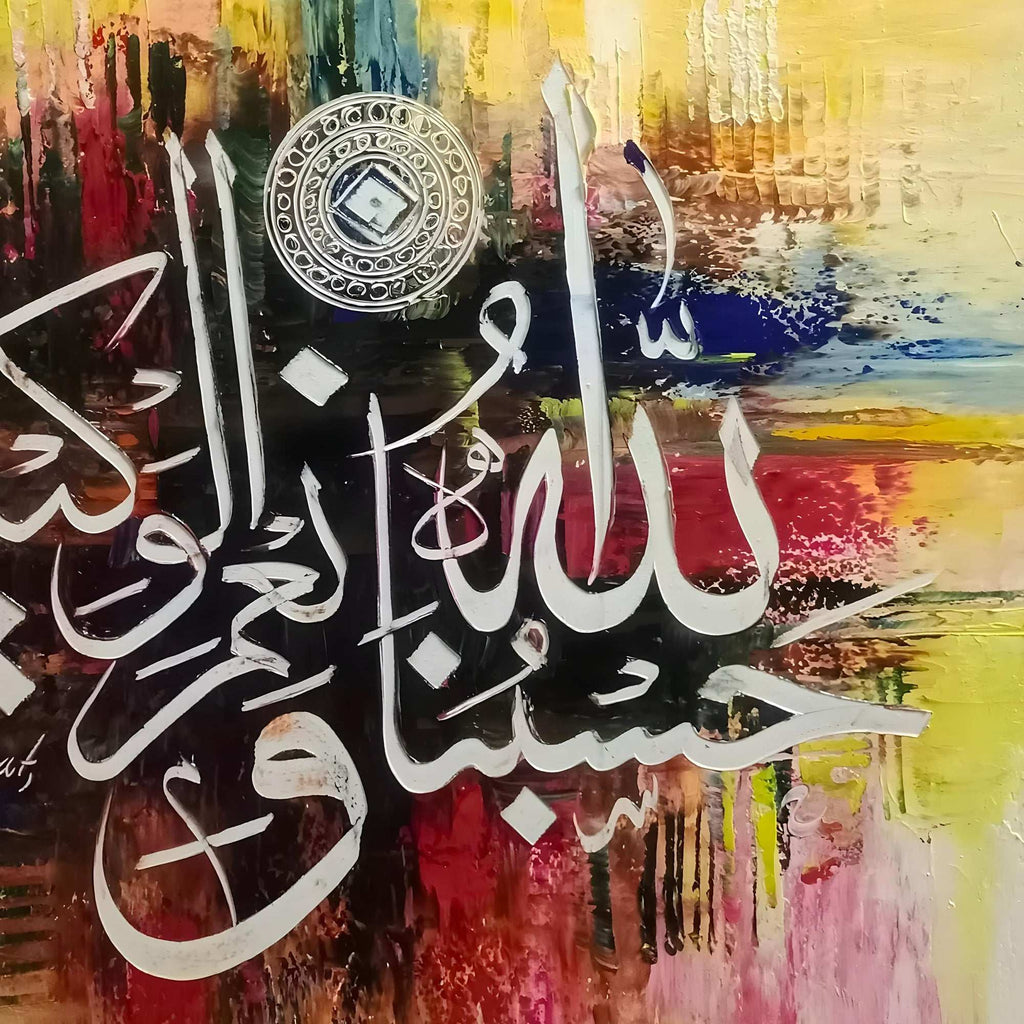 حَسْبُنَا اللّٰهُ وَنِعْمَ الْوَكِيـ